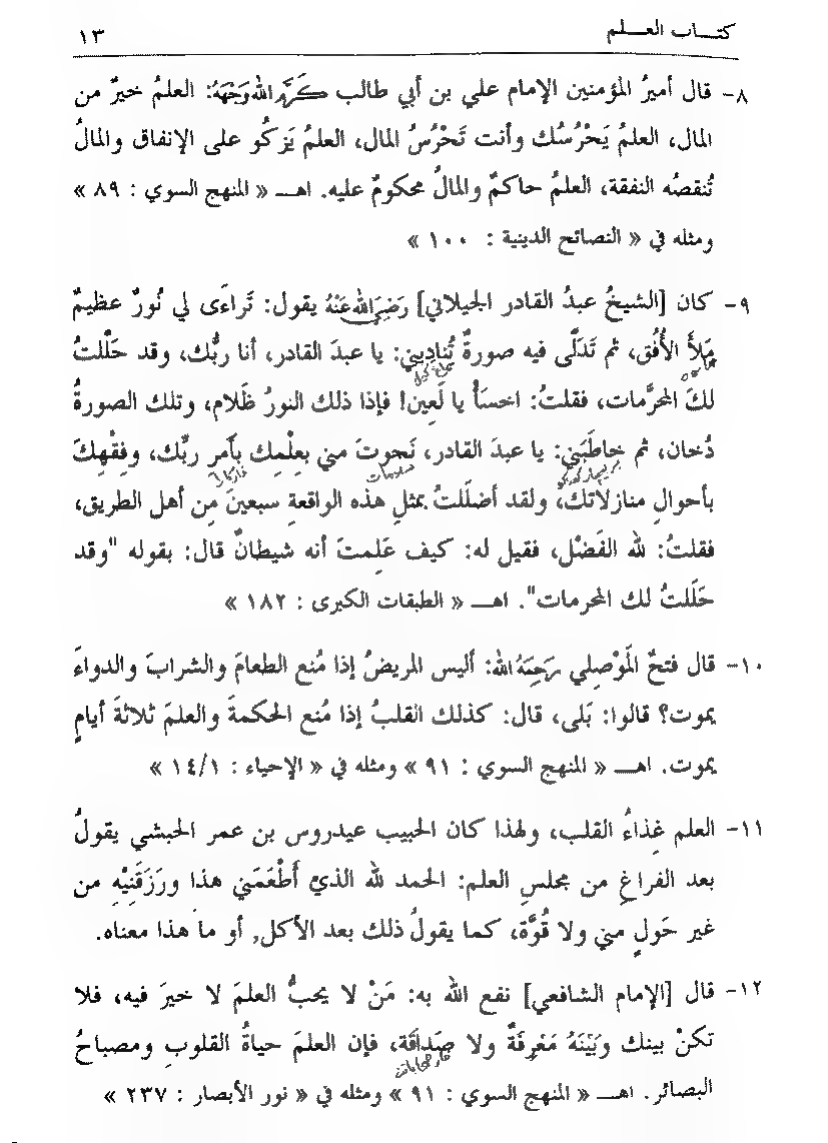 كتـــاب العـــلم ١٣
٨- قال أميرُ المؤمنين الإمام علي بن أبي طالب كَرَّمَ اللهُ وَجْهَهُ: العلمُ خيرٌ من
المال، العلمُ يَحْرُسُك وأنت تَحْرُسُ المال، العلمُ يَزكُو على الإنفاق والمالُ
تُنقصُه النفقة، العلمُ حاكمٌ والمالُ محكومٌ عليه. اهـــ « المنهج السوي : ٨٩ »
ومثله في « النصائح الدينية : ١٠٠ »
٩- كان [الشيخُ عبدُ القادر الجيلاني] رَضِيَ اللهُ عَنْهُ يقول: تَراءَى لي نُورٌ عظيمٌ
مَلأَ الأُفُق، ثم تَدَلَّى فيه صورةٌ تُنادِيني: يا عبدَ القادر، أنا ربُّك، وقد حَلَّلتُ
لكَ المحرَّمات، فقلتُ: اخسَأْ يا لَعين! فإذا ذلك النورُ ظَلام، وتلك الصورةُ
دُخان، ثم خاطَبَني: يا عبدَ القادر، نَجوتَ مني بعِلْمِك بأمرِ ربِّك، وفِقْهِكَ
بأحوالِ منازلاتك، ولقد أضلَلتُ بمثلِ هذه الواقعةِ سبعينَ مِن أهل الطريق،
فقلتُ: لله الفَضْل، فقيل له: كيف عَلِمتَ أنه شيطانٌ قال: بقوله "وقد
حَلَلتُ لك المحرمات". اهـــ « الطبقات الكبرى : ١٨٢ »
١٠- قال فتحٌ المَوْصِلي رَحِمَهُ الله: أليس المريضُ إذا مُنع الطعامَ والشرابَ والدواءَ
يموت؟ قالوا: بَلى، قال: كذلك القلبُ إذا مُنع الحكمةَ والعلمَ ثلاثةَ أيامٍ
يموت. اهـــ « المنهج السوي : ٩١ » ومثله في « الإحياء : ١٤/١ »
١١- العلم غِذاءُ القلب، ولهذا كان الحبيب عيدروس بن عمر الحبشي يقولُ
بعد الفراغِ من مجلسِ العلم: الحمد لله الذي أَطْعَمَني هذا ورَزَقَنِيْهِ من
غير حَولٍ مني ولا قُوَّة، كما يقولُ ذلك بعد الأكل, أو ما هذا معناه.
١٢- قال [الإمام الشافعي] نفع الله به: مَنْ لا يحبُّ العلمَ لا خيرَ فيه، فلا
تكنْ بينك وبَيْنَهُ مَعْرِفَةٌ ولا صَداقَة، فإن العلمَ حياةُ القلوبِ ومصباحُ
البصائر. اهـــ « المنهج السوي : ٩١ » ومثله في « نور الأبصار : ٢٣٧ »